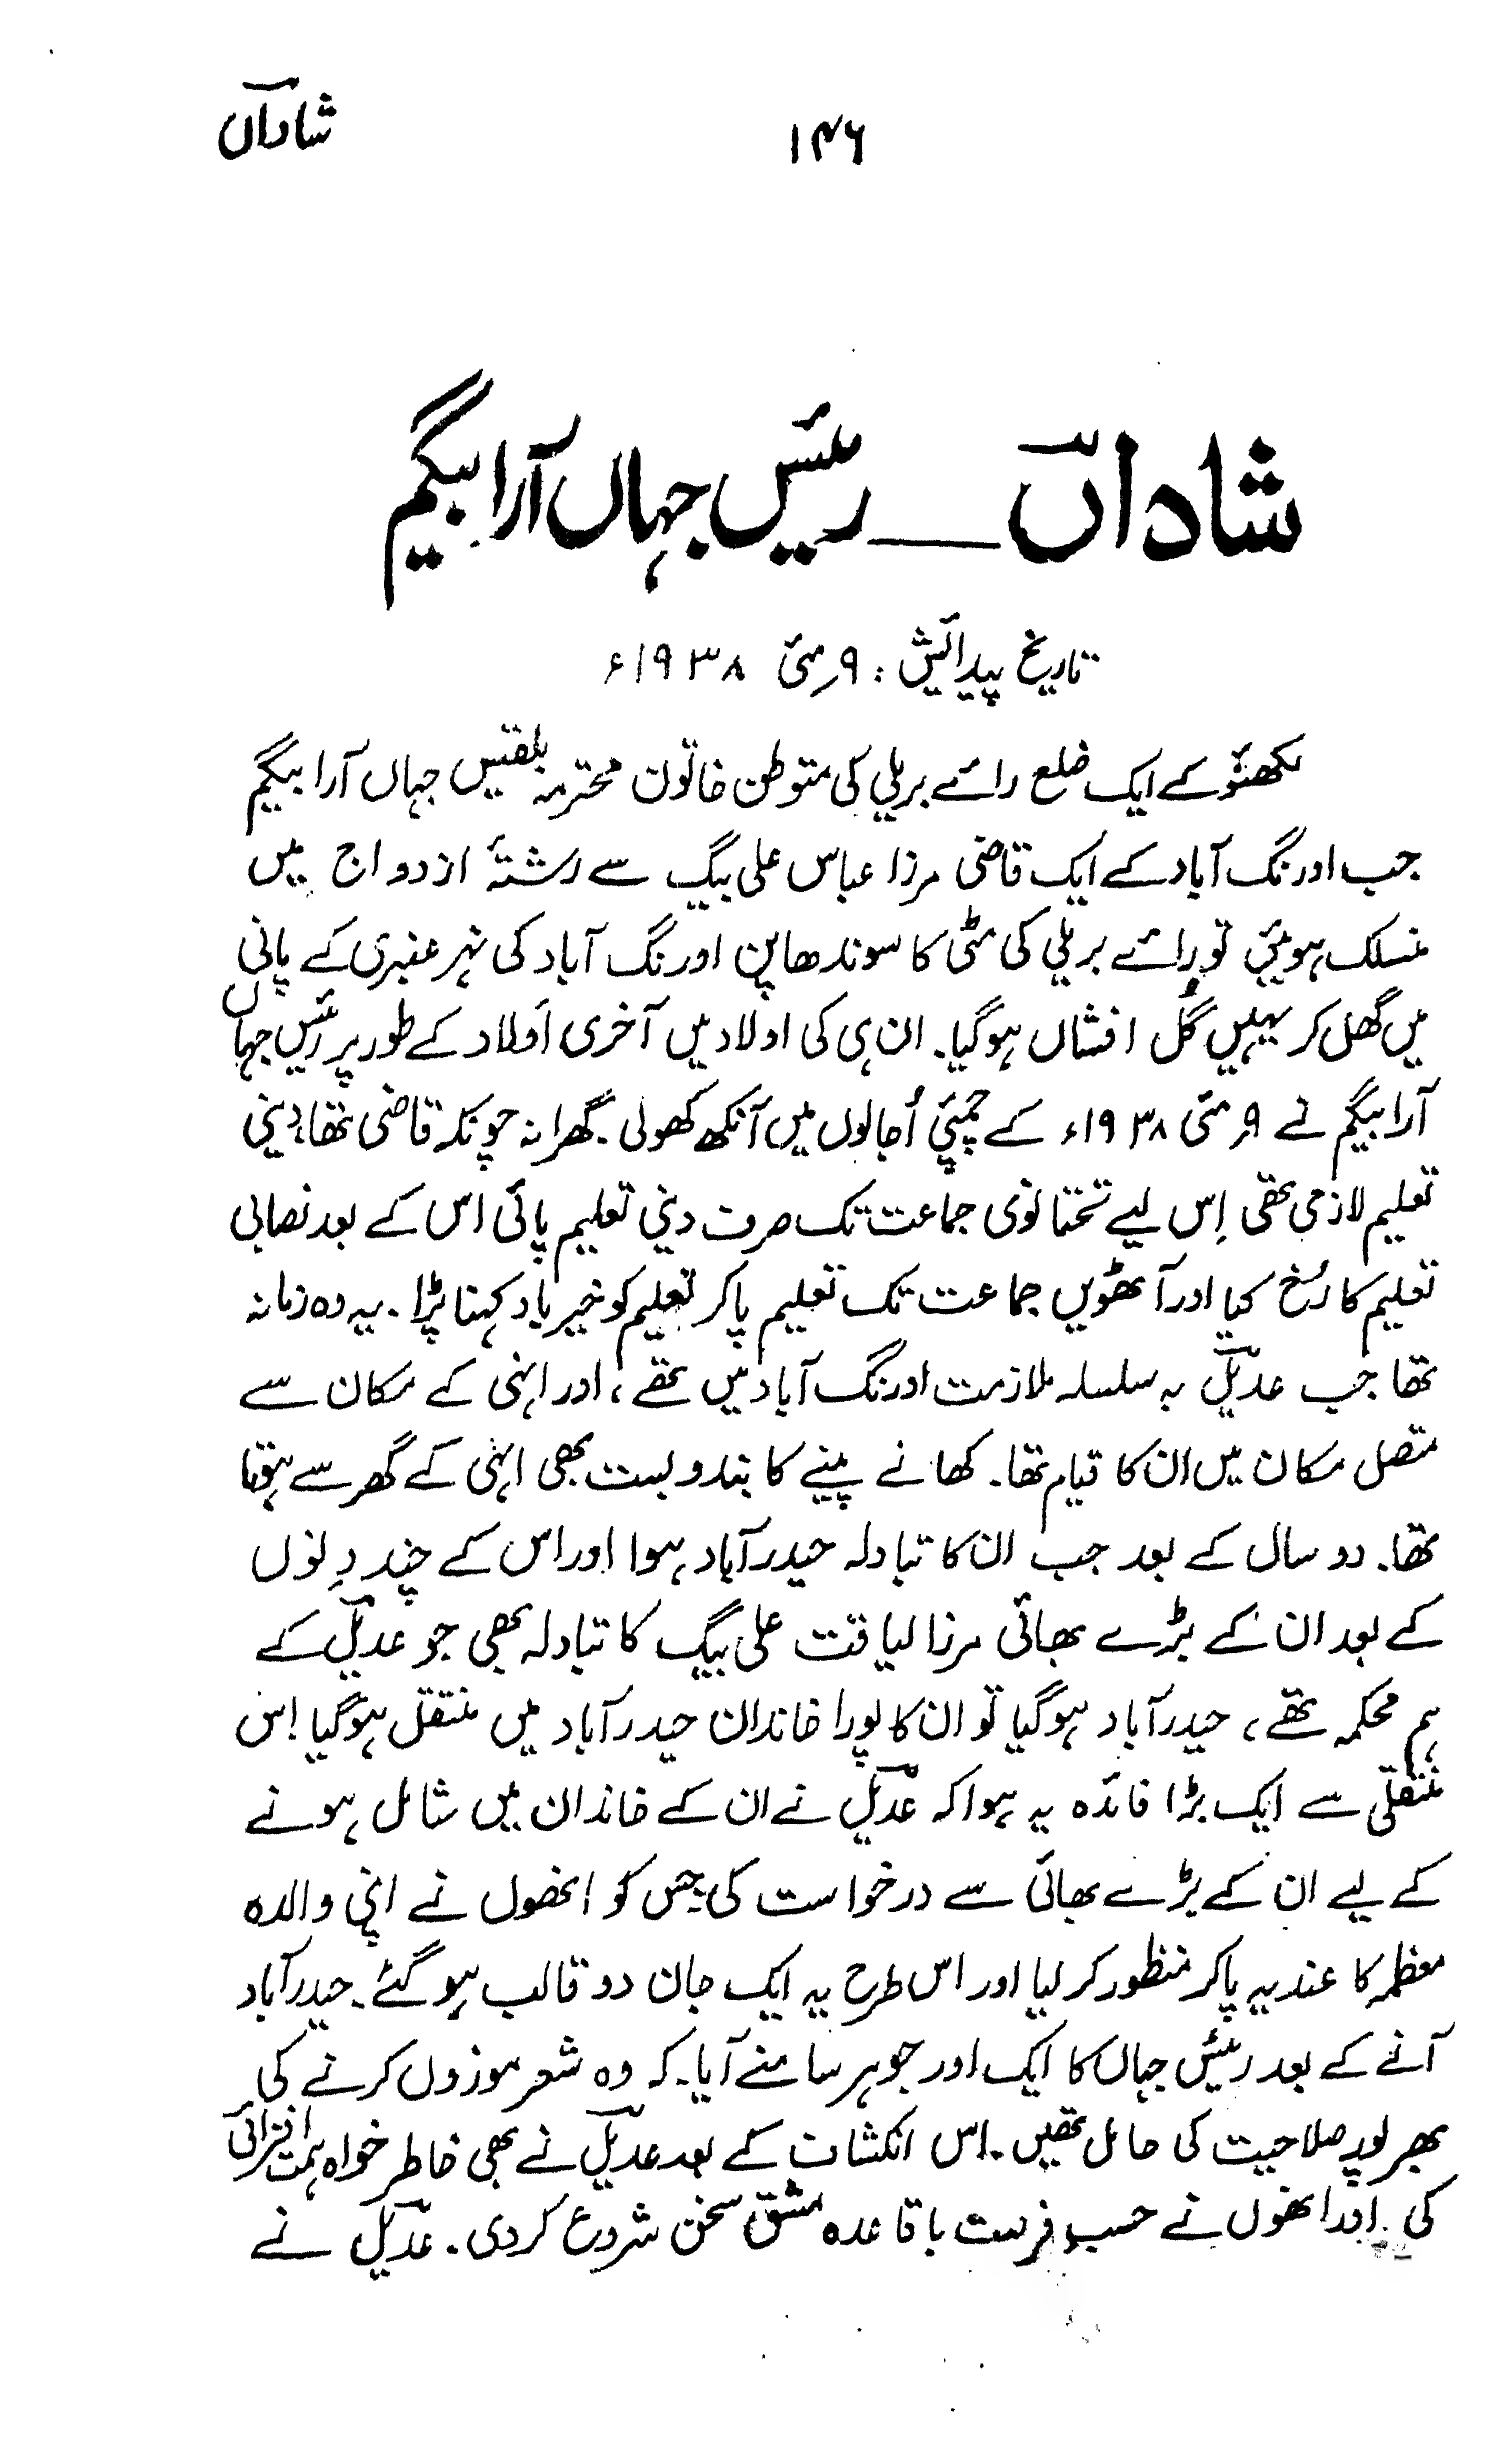 شاداںؔ
۱۴۶
شاداںؔ ــــ رئیس جہاں آرا بیگم
تاریخ پیدائش : ۹؍مئی ۱۹۳۸ء
لکھنؤ کے ایک ضلع رائے بریلی کی متوطن خاتون محترمہ بلقیس جہاں آرا بیگم
جب اورنگ آباد کے ایک قاضی مرزا عباس علی بیگ سے رشتۂ ازدواج میں
منسلک ہوئیں تو رائے بریلی کی مٹی کا سوندھا پن اورنگ آباد کی نہر عنبری کے پانی
میں گھل کر یہیں گُل افشاں ہوگیا۔ ان ہی کی اولاد میں آخری اولاد کے طور پر رئیس جہاں
آرا بیگم نے ۹؍مئی ۱۹۳۸ء کے چمپئی اُجالوں میں آنکھ کھولی۔ گھرانہ چونکہ قاضی تھا، دینی
تعلیم لازمی تھی اِس لیے تحتانوی جماعت تک صرف دینی تعلیم پائی اس کے بعد نصابی
تعلیم کا رُخ کیا اور آٹھویں جماعت تک تعلیم پاکر تعلیم کو خیرباد کہنا پڑا۔ یہ وہ زمانہ
تھا جب عدیلؔ بہ سلسلہ ملازمت اورنگ آباد میں تھے، اور انہی کے مکان سے
متصل مکان میں ان کا قیام تھا۔ کھانے پینے کا بندوبست بھی انہی کے گھر سے ہوتا
تھا۔ دو سال کے بعد جب ان کا تبادلہ حیدرآباد ہوا اور اس کے چند دِنوں
کے بعد ان کے بڑے بھائی مرزا لیاقت علی بیگ کا تبادلہ بھی جو عدیلؔ کے
ہم محکمہ تھے، حیدرآباد ہوگیا تو ان کا پورا خاندان حیدرآباد میں منتقل ہوگیا اِس
منتقلی سے ایک بڑا فائدہ یہ ہوا کہ عدیلؔ نے ان کے خاندان میں شامل ہونے
کے لیے ان کے بڑے بھائی سے درخواست کی جس کو انھوں نے اپنی والدہ
معظمہ کا عندیہ پاکر منظور کر لیا اور اس طرح یہ ایک جان دو قالب ہوگئے۔ حیدرآباد
آنے کے بعد رئیس جہاں کا ایک اور جوہر سامنے آیا۔ کہ وہ شعر موزوں کرنے کی
بھرپور صلاحیت کی حامل تھیں۔ اس انکشاف کے بعد عدیلؔ نے بھی خاطر خواہ ہمت افزائی
کی۔ اور انھوں نے حسب فرصت باقاعدہ مشق سخن شروع کردی۔ عدیلؔ نے